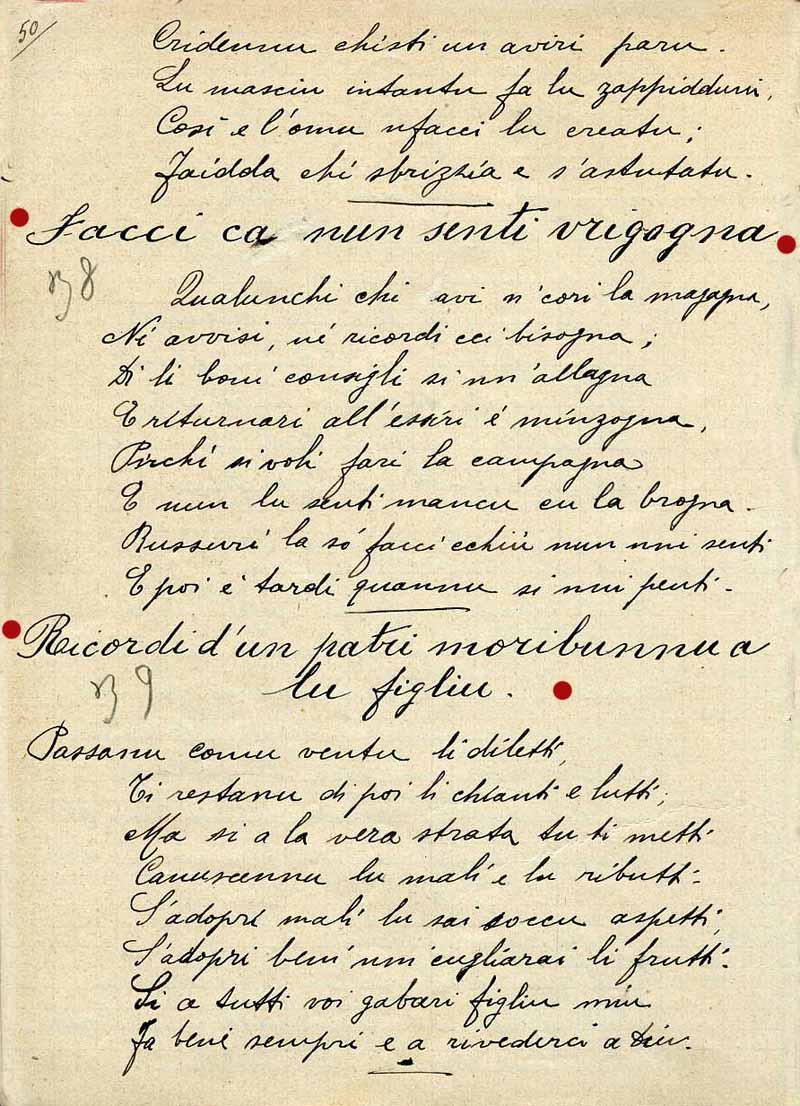 50
Cridennu chisti un aviri paru.
Lu masciu intantu fa lu zappidduni,
Cosí e l'omu nfacci lu creatu;
Faidda chi sbrizzía e s'astutatu.
Facci ca nun senti vrigogna
38
Qualunchi chi avi n'cori la magagna,
Né avvisi, né ricordi cci bisogna;
Di li boni consigli si nn'allagna
E riturnari all'essiri é minzogna,
Pirchí si voli fari la campagna
E nun lu senti mancu cu la brogna.
Russuri la só facci cchiú nun nni senti
E poi é tardi quannu si nni penti.
Ricordi d'un patri moribunnu a
lu figliu.
39
Passanu comu ventu li diletti,
Ti restanu di poi li chianti e lutti;
Ma si a la vera strata tu ti metti
Canuscennu lu mali e lu ributti.
S'adopri mali lu sai soccu aspetti,
S'adopri beni nni cugliarai li frutti.
Si a tutti voi gabari figliu miu
Fa beni sempri e a rivederci a Diu.